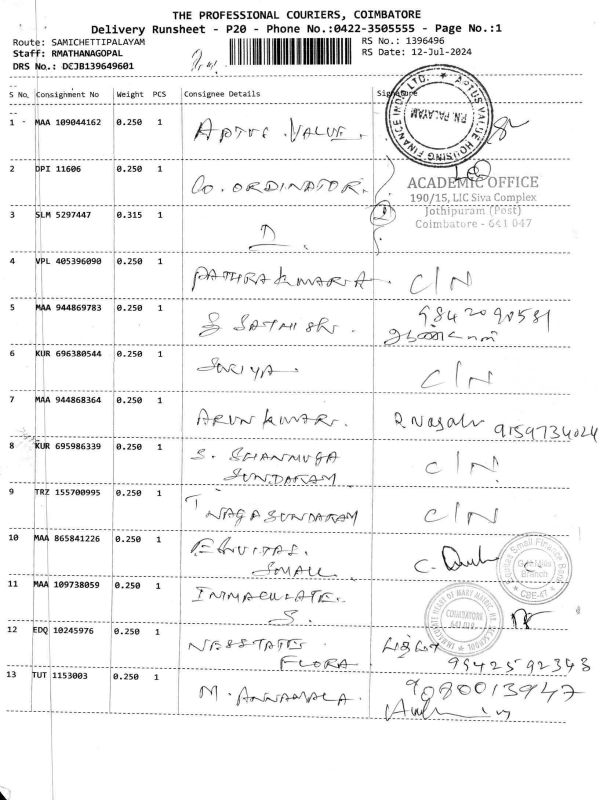 THE PROFESSIONAL COURIERS, COIMBATORE
Delivery Runsheet - P20 - Phone No.:0422-3505555 - Page No.:1
Route: SAMICHETTIPALAYAM RS No.: 1396496
Staff: RMATHANAGOPAL RS Date: 12-Jul-2024
DRS No.: DEJB139649601
S No. Consignment No Weight PCS Consignee Details Signature
1 MAA 109044162 0.250 1 APTUS VALUE
APTUS VALUE HOUSING FINANCE INDIA LTD.
P.N. PALAYAM
2 DPI 11606 0.250 1 CO.ORDINATOR.
ACADEMIC OFFICE
190/15, LIC Siva Complex
Jothipuram (Post)
Coimbatore - 641 047
3 SLM 5297447 0.315 1 D
4 VPL 405396090 0.250 1 C/N
5 MAA 944869783 0.250 1 S SATHISH. 9842090581
6 KUR 696380544 0.250 1 SURIYA. C/N
7 MAA 944868364 0.250 1 ARUN KUMAR. 9159734024
8 KUR 695986339 0.250 1 S. SHANMUGA C/N
SUNDARAM
9 TRZ 155700995 0.250 1 NAGASUNDARAM C/N
10 MAA 865841226 0.250 1 EQUITAS.
SMALL.
Small Finance Bank
Branch
CBE-47
11 MAA 109738059 0.250 1 IMMACULATE.
S.
COIMBATORE
12 EDQ 10245976 0.250 1 FLORA 9942592343
13 TUT 1153003 0.250 1 9080013947